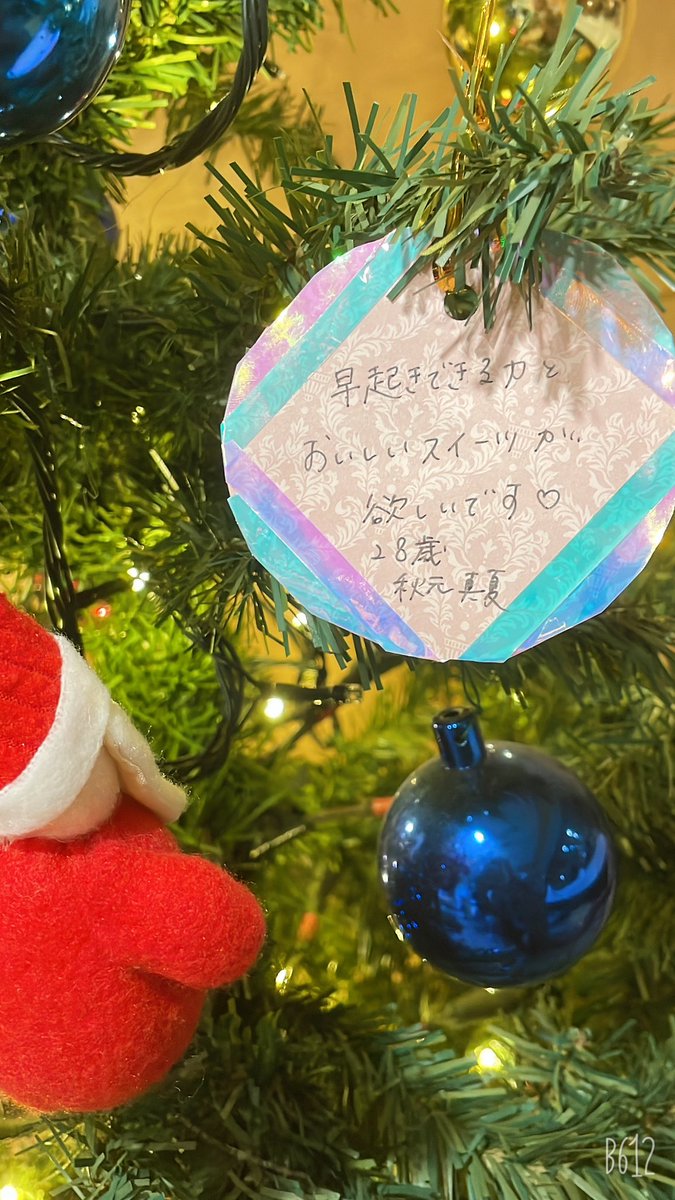 早起きできる力と
おいしいスイーツが
欲しいです♡
28歳
秋元真夏
B612